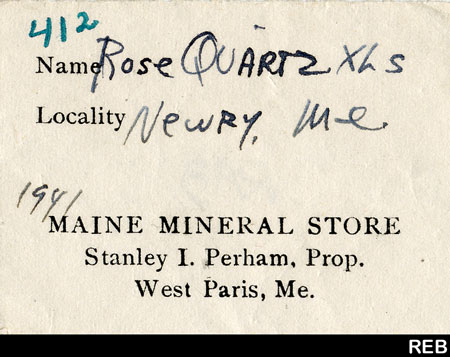 412
Name Rose Quartz XLS
Locality Newry, Me.
1941
MAINE MINERAL STORE
Stanley I. Perham, Prop.
West Paris, Me.
REB